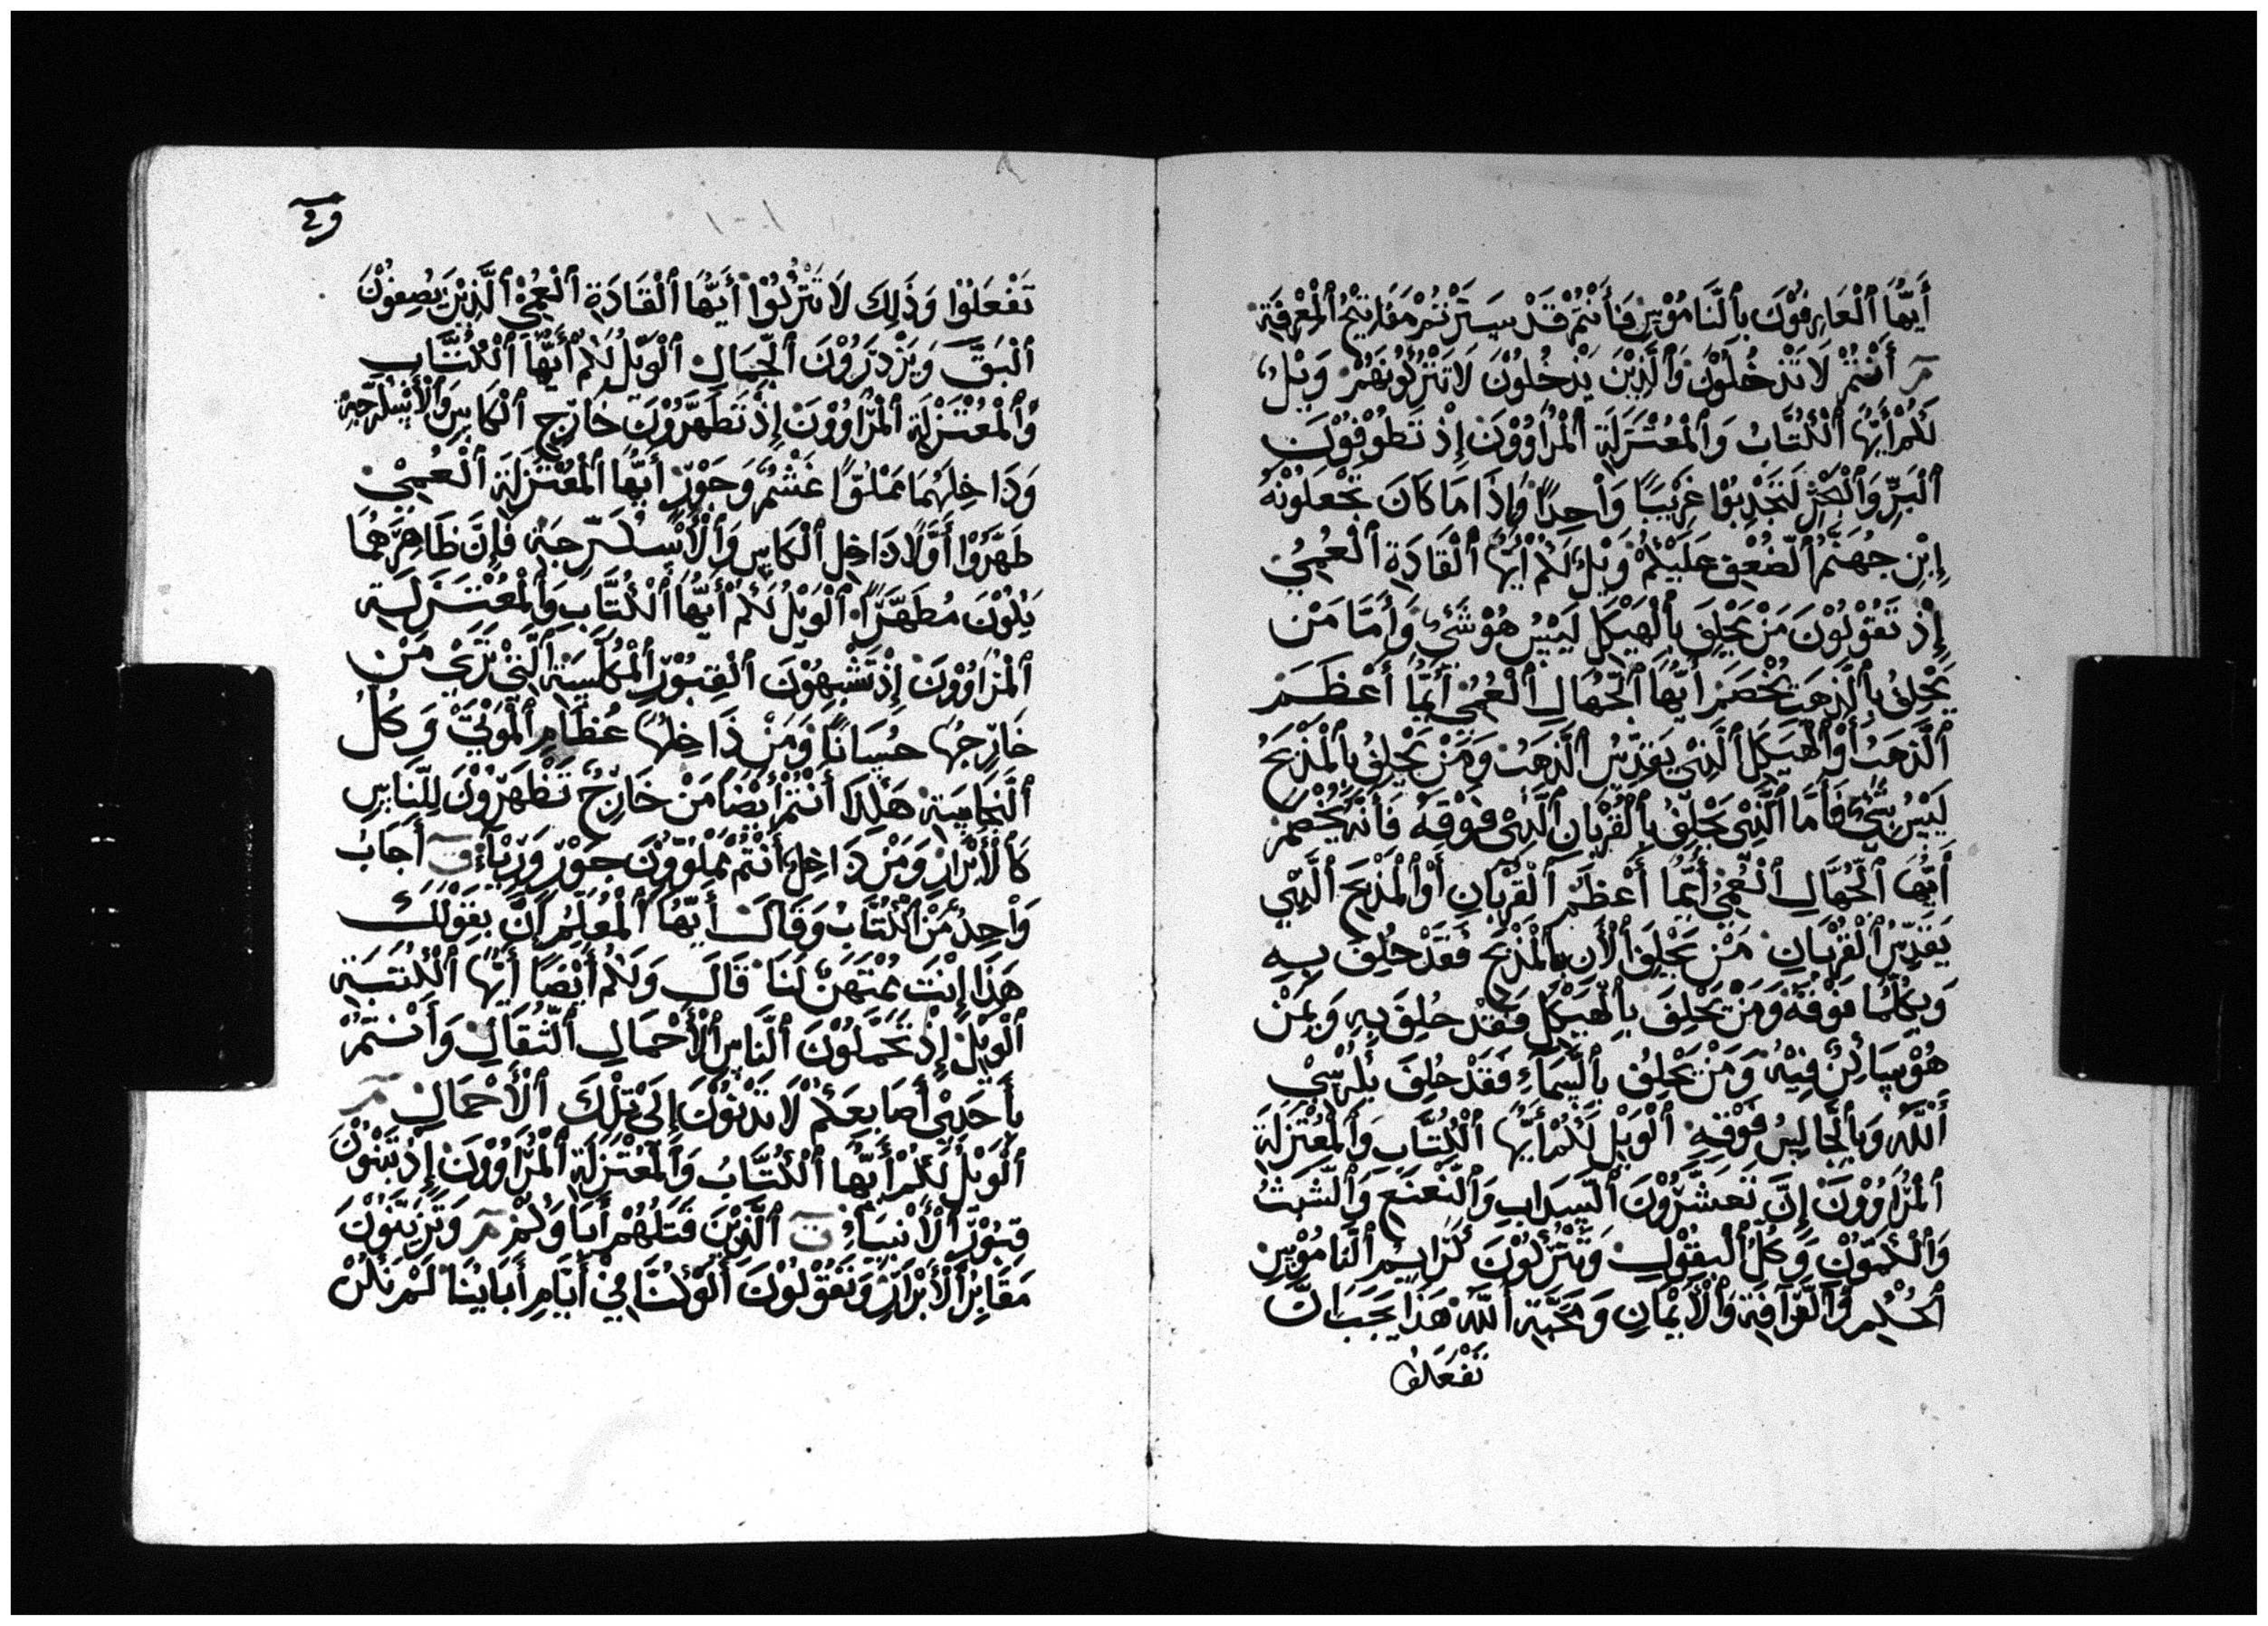 أَيُّهَا ٱلْعَارِفُوْنَ بِٱلنَّامُوْسِ فَأَنْتُمْ قَدْ سَتَرْتُمْ مَفَاتِيْحُ ٱلْمَعْرِفَةِ
أَنْتُمْ لَا تَدْخُلُوْنَ وَٱلَّذِيْنَ يَدْخُلُوْنَ لَا تَتْرُكُوْنَهُمْ وَيْلٌ
لَكُمْ أَيُّهَا ٱلْكُتَّابُ وَٱلْمُعْتَزِلَةِ ٱلْمُرَاوُوْنَ إِذْ تَطُوْفُوْنَ
ٱلْبَرِّ وَٱلْبَحْرِ لِتَجْذِبُوْا غَرِيْبًا وَاحِدًا وَإِذَا مَا كَانَ تَجْعَلُوْنَهُ
إِبْنِ جُهَنَّمُ ٱلضِّعْقِ عَلَيْكُمْ وَيْلٌ لَكُمْ أَيُّهَا ٱلْقَادَةِ ٱلْعُمِيُ
إِذْ تَقُوْلُوْنَ مَنْ يَحْلِفَ بِٱلْهَيْكَلِ لَيْسُ هُوْ شَيْءٌ وَأَمَّا مَنْ
يَحْلِفُ بِٱلذَّهَبَ يُخْصَمَرَ أَيُّهَا ٱلْجُهَّالِ ٱلْعُمْيِ أَيُّمَا أَعْظَمَ
ٱلذَّهَبُ أَوْ ٱلْهَيْكَلَ ٱلَّذِيْ يُقَدِّسُ ٱلذَّهَبُ وَمَنْ يَحْلِفُ بِٱلْمَذْبَحُ
لَيْسُ بِشَيْءٍ فَأَمَّا ٱلَّذِيْ يَحْلِفُ بِٱلْقُرْبَانِ ٱلَّذِيْ فَوْقَهُ فَأَنَّهُ يُخْصَمْ
أَيُّهَا ٱلْجُهَّالِ ٱلْعُمْيُ أَيُّمَا أَعْظَمُ ٱلْقُرْبَانِ أَوْ ٱلْمَذْبَحَ ٱلَّذِيْ
يُقَدِّسُ ٱلْقُرْبَانِ مَنْ يَحْلِفَ ٱلْأَنَ بِٱلْمَذْبَحِ فَقَدْ حَلِفَ بِهِ
وَبِكُلِّمَا فَوْقَهُ وَمَنْ يَحْلِفَ بِٱلْهَيْكَلِ فَقَدْ حَلِفَ بِهِ وَبِمَنْ
هُوْ سَاكِنٌ فِيْهُ وَمَنْ يَحْلِفُ بِٱلسَّمَاءِ فَقَدْ حَلِفَ بِكُرْسِيْ
ٱللَّهُ وَبِٱلْجَالِسُ فَوْقِهِ ٱلْوَيْلِ لَكُمْ أَيُّهَا ٱلْكُتَّابِ وَٱلْمُعْتَزِلَةِ
ٱلْمُرَاوُوْنَ إِنَّ تُعَشِّرُوْنَ ٱلسَّدَابِ وَٱلنَّعْنَعِ وَٱلشَّبَثُ
وَٱلْكَمُّوْنِ وَكُلُّ ٱلْبُقُوْلِ وَتَتْرُكُوْنَ كُرَايِمُ ٱلنَّامُوْسِ
ٱلْحُكْمِ وَٱلرَّافَةِ وَٱلْأَيْمَانِ وَمَحَبَّةِ ٱللَّهُ هَذَا يَجَبَ أَنَّ
تَفْعَلُوْا
وع
تَفْعَلُوْا وَذَلِكَ لَا تَتْرُكُوْا أَيُّهَا ٱلْقَادَةِ ٱلْعُمْيُ ٱلَّذِيْنَ يُصِفُوْنَ
ٱلْبَقَّ وَيَزْدَرَدُوْنَ ٱلْجِمَالِ ٱلْوَيْلُ لَكُمْ أَيُّهَا ٱلْكُتَّابِ
وَٱلْمُعْتَزِلَةِ ٱلْمُرَاوُوْنَ إِذْ تُطَهِّرُوْنَ خَارِجِ ٱلْكَاسِ وَٱلْأُسْكُرُّجَةِ
وَدَاخِلَهُمَا مَمْلُوًّا غَشْمٌ وَجَوْرٌ أَيُّهَا ٱلْمُعْتَزِلَةَ ٱلْعُمِيْ
طَهِّرُوْا أَوَّلًا دَاخِلِ ٱلْكَاسِ وَٱلْأُسْكُرُّجَةِ فَإِنَّ ظَاهِرَهُمَا
يَكُوْنَ مُطَهَّرًا ٱلْوَيْلُ لَكُمْ أَيُّهَا ٱلْكُتَّابِ وَٱلْمُعْتَزِلَةِ
ٱلْمُرَاوُوْنَ إِذْ تَشْبِهُوْنَ ٱلْقُبُوْرِ ٱلْمُكَلَّسَةِ ٱلَّتِيْ تُرَىَ مَنْ
خَارِجُهَا حِسَانًا وَمَنْ دَاخِلُهَا عُظَامِ ٱلْمَوْتَىْ وَكُلُّ
ٱلنَّجَاسَةِ هَكَذَا أَنْتُمْ أَيْضًا مَنْ خَارِجٌ تَظْهَرُوْنَ لِلنَّاسِ
كَٱلْأَبْرَارِ وَمَنْ دَاخِلٍ أَنْتُمْ مَمْلُوُوْنَ جَوْرٌ وَرِيَاءٍ أَجَابُ
وَاحِدٌ مَنْ ٱلْكُتَّابُ وَقَالَ أَيُّهَا ٱلْمُعَلِّمُ إَنَّ بِقَوْلِكَ
هَذَا إِنْتَ مُمْتَهَنٌ لَنَا قَالَ وَلَكُمْ أَيْضًا أَيُّهَا ٱلْكَتَبَةِ
ٱلْوَيْلُ إِذْ تُحَمِّلُوْنَ ٱلنَّاسِ ٱلْأَحْمَالِ ٱلثِّقَالِ وَأَنْتُمْ
بِأَحَدِىْ أَصَابِعَكُمْ لَا تَدْنُوْنَ إِلَىْ تِلْكَ ٱلْأَحْمَالِ
ٱلْوَيْلُ لَكُمْ أَيُّهَا ٱلْكُتَّابُ وَٱلْمُعْتَزِلَةِ ٱلْمُرَاوُوْنَ إِذْ تَبْنُوْنَ
قُبُوْرِ ٱلْأَنْبِيَاءِ ٱلَّذِيْنَ قَتَلَهُمْ أَبَاوُكُمْ وَتُزَيِّنُوْنَ
مَقَابِرُ ٱلْأَبْرَارِ وَتَقُوْلُوْنَ أَلَوْ كُنَّا فِيْ أَيَّامِ أَبَايُنَا لَمْ نَكُنْ